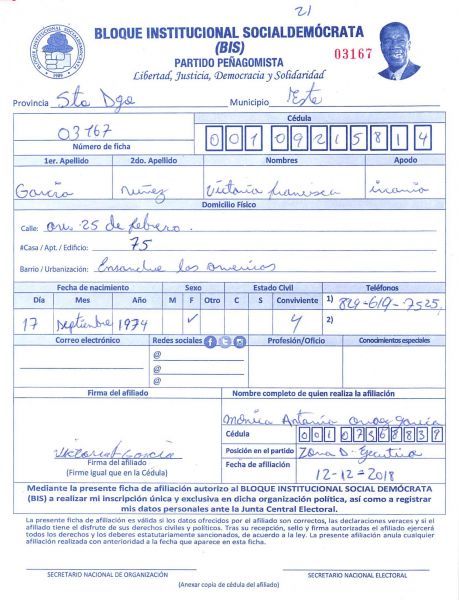 21
BLOQUE INSTITUCIONAL SOCIALDEMÓCRATA
(BIS)
PARTIDO PEÑAGOMISTA
Libertad, Justicia, Democracia y Solidaridad
BLOQUE INSTITUCIONAL SOCIALDEMOCRATA
03167
Provincia Sto Dgo Municipio Este
03167
Número de ficha
Cédula
00109215814
1er. Apellido 2do. Apellido Nombres Apodo
García Nuñez Victoria francisca
Domicilio Físico
Calle: 25 de febrero.
#Casa / Apt. / Edificio: 75
Barrio / Urbanización: Ensanche las americas
Fecha de nacimiento Sexo Estado Civil Teléfonos
Día Mes Año M F Otro C S Conviviente 1) 829-619-7525
17 Septiembre 1974 ✓ 4 2)
Correo electrónico Redes sociales Profesión/Oficio Conocimientos especiales
@
@
@
Firma del afiliado Nombre completo de quien realiza la afiliación
Mónica Antonia García
Cédula 00107368839
Victoria García
Firma del afiliado
(Firme igual que en la Cédula)
Posición en el partido Zona D. Ejecutiva
Fecha de afiliación
12-12-2018
Mediante la presente ficha de afiliación autorizo al BLOQUE INSTITUCIONAL SOCIAL DEMÓCRATA
(BIS) a realizar mi inscripción única y exclusiva en dicha organización política, así como a registrar
mis datos personales ante la Junta Central Electoral.
La presente ficha de afiliación es válida si los datos ofrecidos por el afiliado son correctos, las declaraciones veraces y si el
afiliado tiene el disfrute de sus derechos civiles y políticos. Tras su recepción, sello y firma autorizadas el afiliado ejercerá
todos los derechos y los deberes estatutariamente sancionados, de acuerdo a la ley. La presente afiliación anula cualquier
afiliación realizada con anterioridad a la fecha que aparece en esta ficha.
SECRETARIO NACIONAL DE ORGANIZACIÓN SECRETARIO NACIONAL ELECTORAL
(Anexar copia de cédula del afiliado)